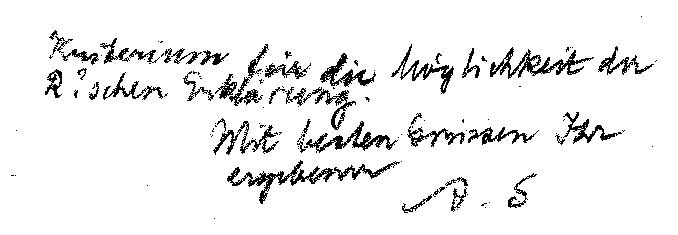 Kriterium für die Möglichkeit der
R.'schen Erklärung.
Mit besten Grüssen Ihr
ergebener
A. S